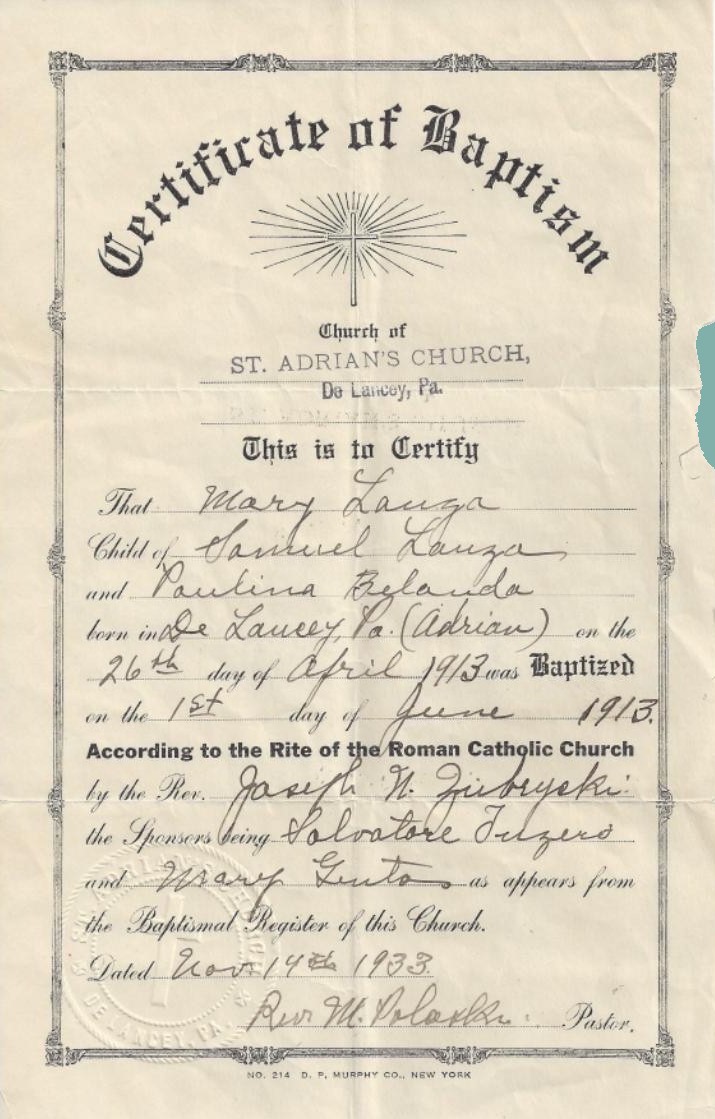 Certificate of Baptism
Church of
ST. ADRIAN'S CHURCH,
De Lancey, Pa.
This is to Certify
That Mary Lanza
Child of Samuel Lanza
and Paulina Belanda
born in De Lancey, Pa. (Adrian) on the
26th day of April 1913 was Baptized
on the 1st day of June 1913.
According to the Rite of the Roman Catholic Church
by the Rev. Joseph N. Zubryski
the Sponsors being Salvatore Inzero
and Mary as appears from
the Baptismal Register of this Church.
Dated Nov. 14th 1933.
Rev. M. Polaski Pastor.
DE LANCEY, PA.
NO. 214 D. P. MURPHY CO., NEW YORK